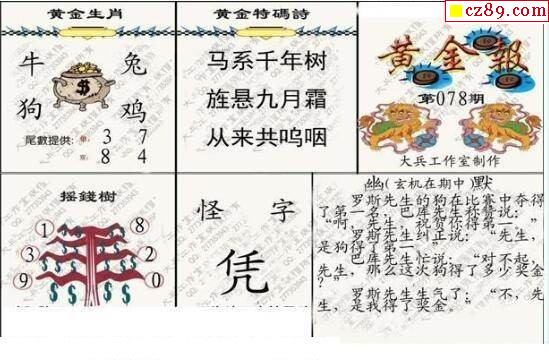 cz89.com
黄金生肖
牛 兔
狗 鸡
尾數提供: 单: 3 7
双: 8 4
黄金特碼詩
马系千年树
旌悬九月霜
从来共呜咽
黄金報
第078期
大兵工作室制作
摇錢樹
1 8
3 2
9 0
怪 字
凭
幽(玄机在期中)默
罗斯先生的狗在比赛中夺得
了第一名，巴库先生称赞说：
“啊，先生，祝贺你得第一。”
罗斯先生纠正说：“先生，
是狗得了第一”
巴库先生忙说：“对不起，
先生，那么这次狗得了多少奖金
？”
罗斯先生生气了：“不，先
生，是我得了奖金。”